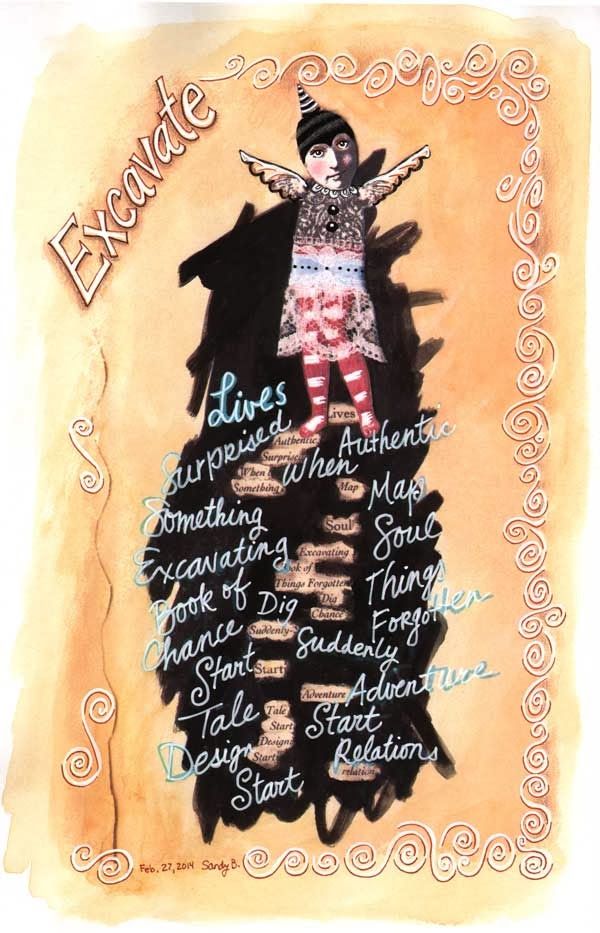 Excavate
Lives
Lives
Surprised Authentic Authentic
Surprise
When When
Something Map Map
Something Soul Soul
Excavating Excavating
Book of Book of
Things Forgotten Things
Dig Dig Forgotten
Chance Chance
Suddenly- Suddenly
Start Start
Adventure Adventure
Tale Tale
Start Start
Design Design Relations
Start relation
Start
Feb. 27, 2014 Sandy B.